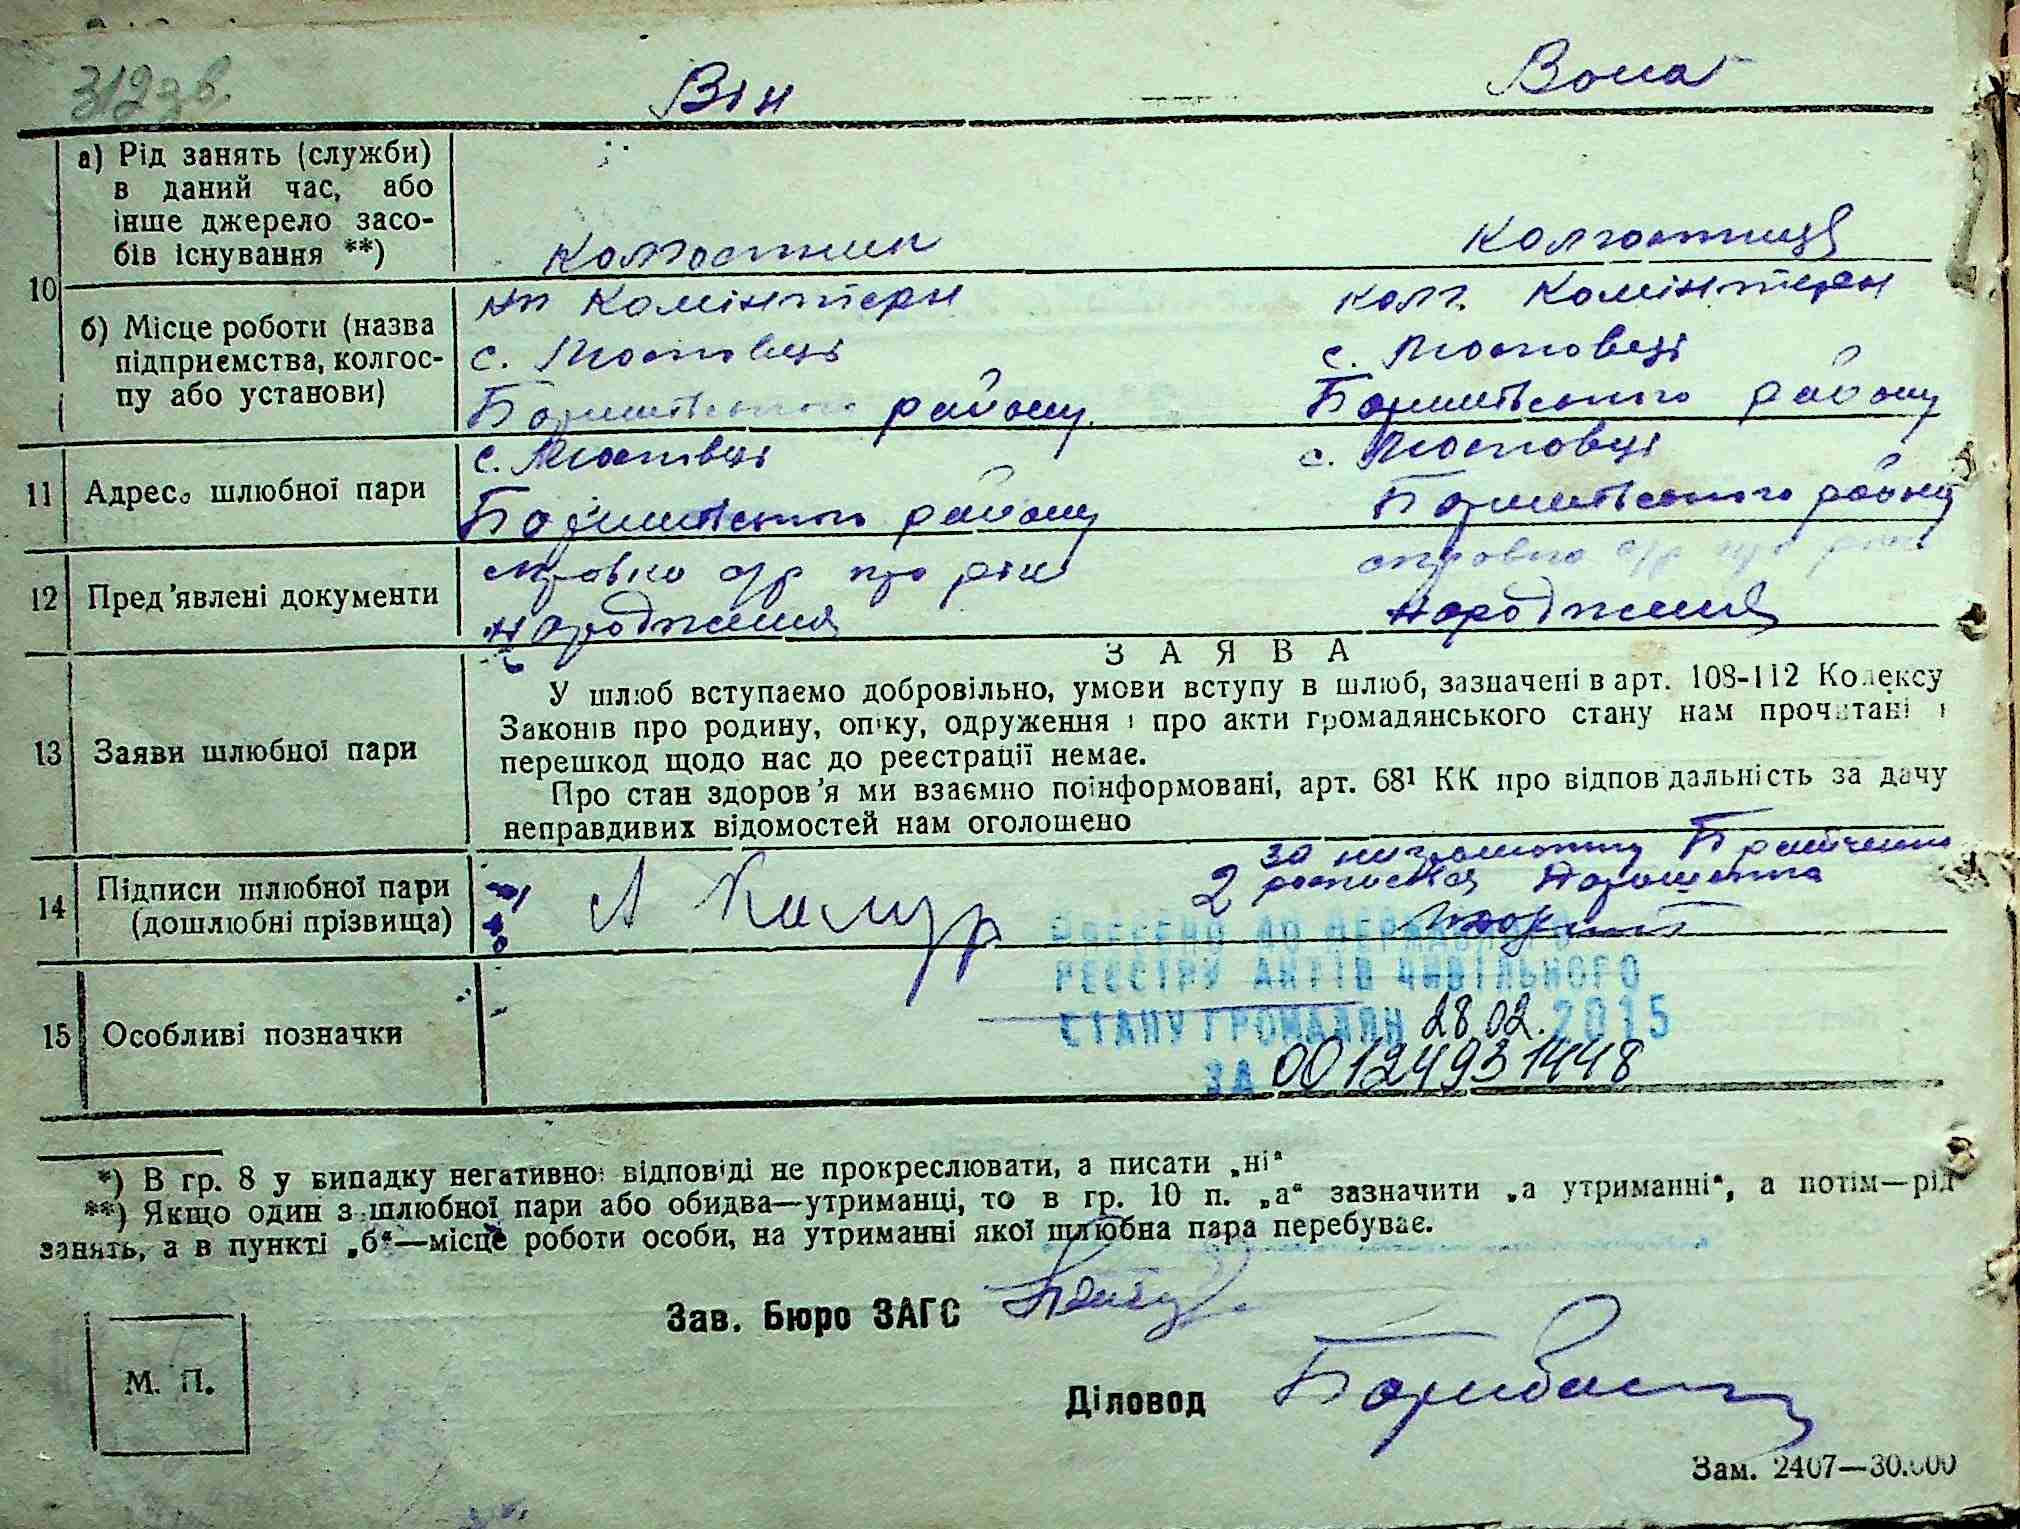 312 зв.
Він Вона
а) Рід занять (служби)
в даний час, або
інше джерело засо-
бів існування **)
колгоспник колгоспниця
10
б) Місце роботи (назва
підприємства, колгос-
пу або установи)
Комінтерн колг. Комінтерн
с. с.
району району
11 Адреса шлюбної пари
с. с.
району району
12 Пред'явлені документи
справка с/р про рік справка с/р про рік
народження народження
13 Заяви шлюбної пари
ЗАЯВА
У шлюб вступаємо добровільно, умови вступу в шлюб, зазначені в арт. 108-112 Кодексу
Законів про родину, опіку, одруження і про акти громадянського стану нам прочитані і
перешкод щодо нас до реєстрації немає.
Про стан здоров'я ми взаємно поінформовані, арт. 68¹ КК про відповідальність за дачу
неправдивих відомостей нам оголошено
14 Підписи шлюбної пари
(дошлюбні прізвища)
1 2 за
ВНЕСЕНО ДО ДЕРЖАВНОГО
РЕЄСТРУ АКТІВ ЦИВІЛЬНОГО
СТАНУ ГРОМАДЯН 28.02. 2015
ЗА 001249931448
15 Особливі позначки
*) В гр. 8 у випадку негативної відповіді не прокреслювати, а писати „ні“
**) Якщо один з шлюбної пари або обидва—утриманці, то в гр. 10 п. „а“ зазначити „а утриманні“, а потім—рід
занять, а в пункті „б“—місце роботи особи, на утриманні якої шлюбна пара перебуває.
Зав. Бюро ЗАГС
М. П.
Діловод
Зам. 2407—30.000